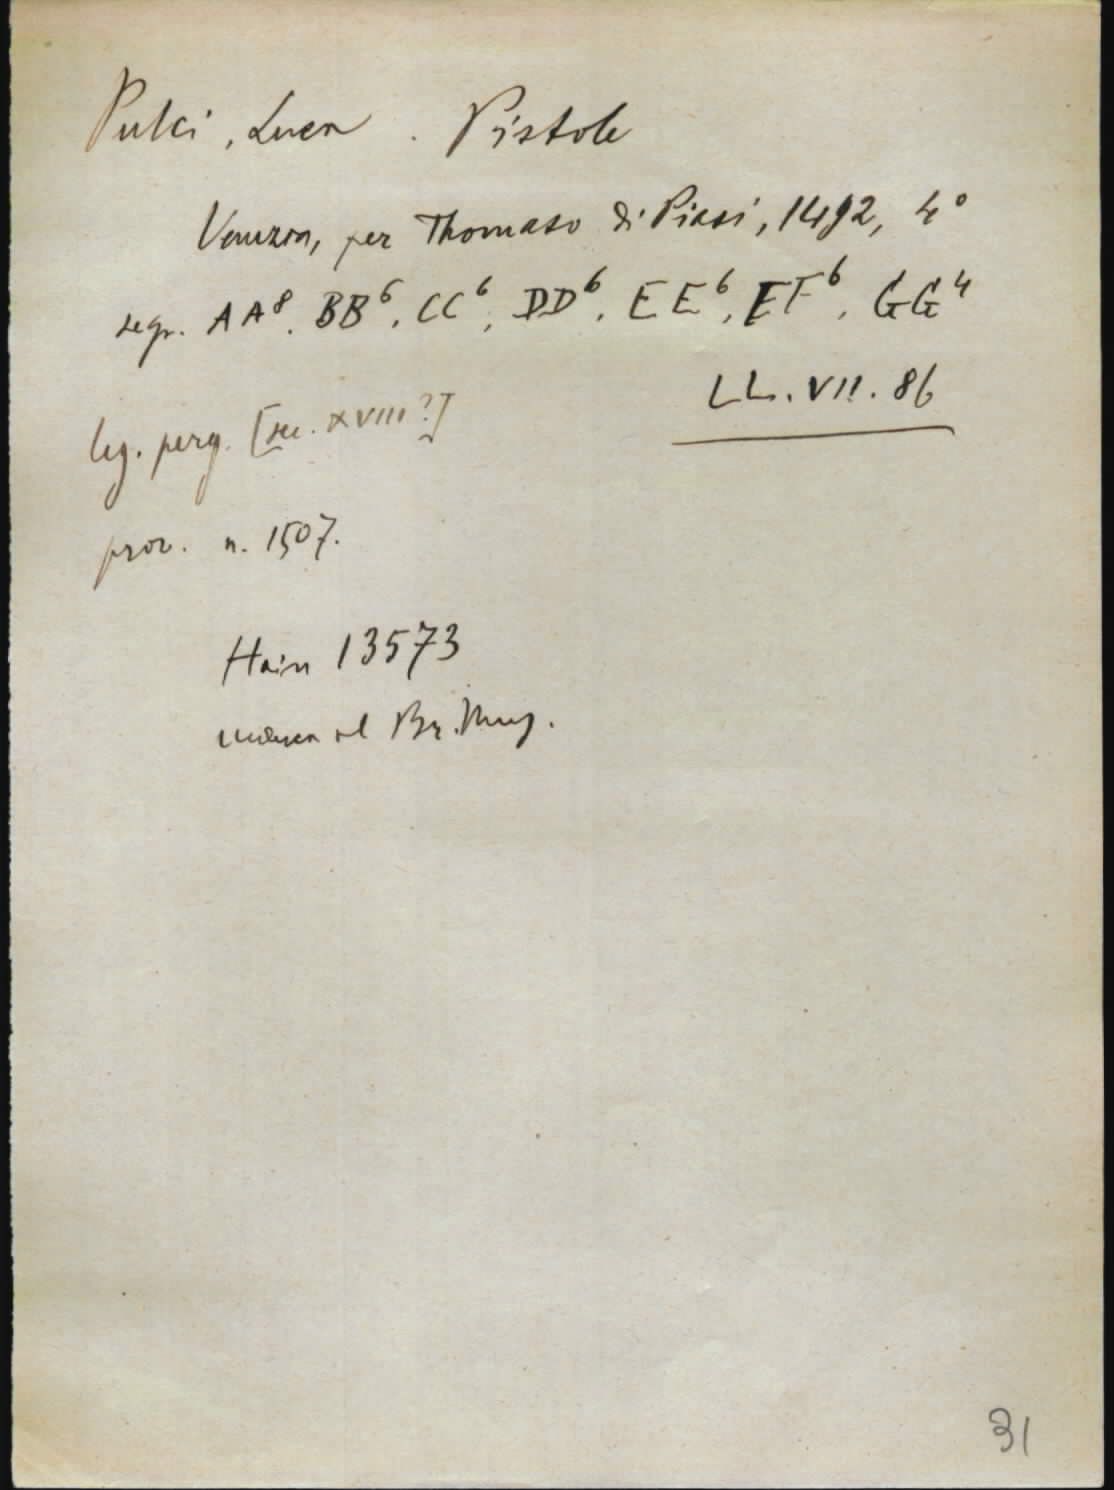 Pulci, Luca. Pistole
Venezia, per Thomaso di Piasi, 1492, 4°
segn. AA⁸. BB⁶. CC⁶. DD⁶. EE⁶. FF⁶. GG⁴
LL. VII. 86
leg. perg. [sec. XVIII?]
prov. n. 1507.
Hain 13573
manca al Br. Mus.
31